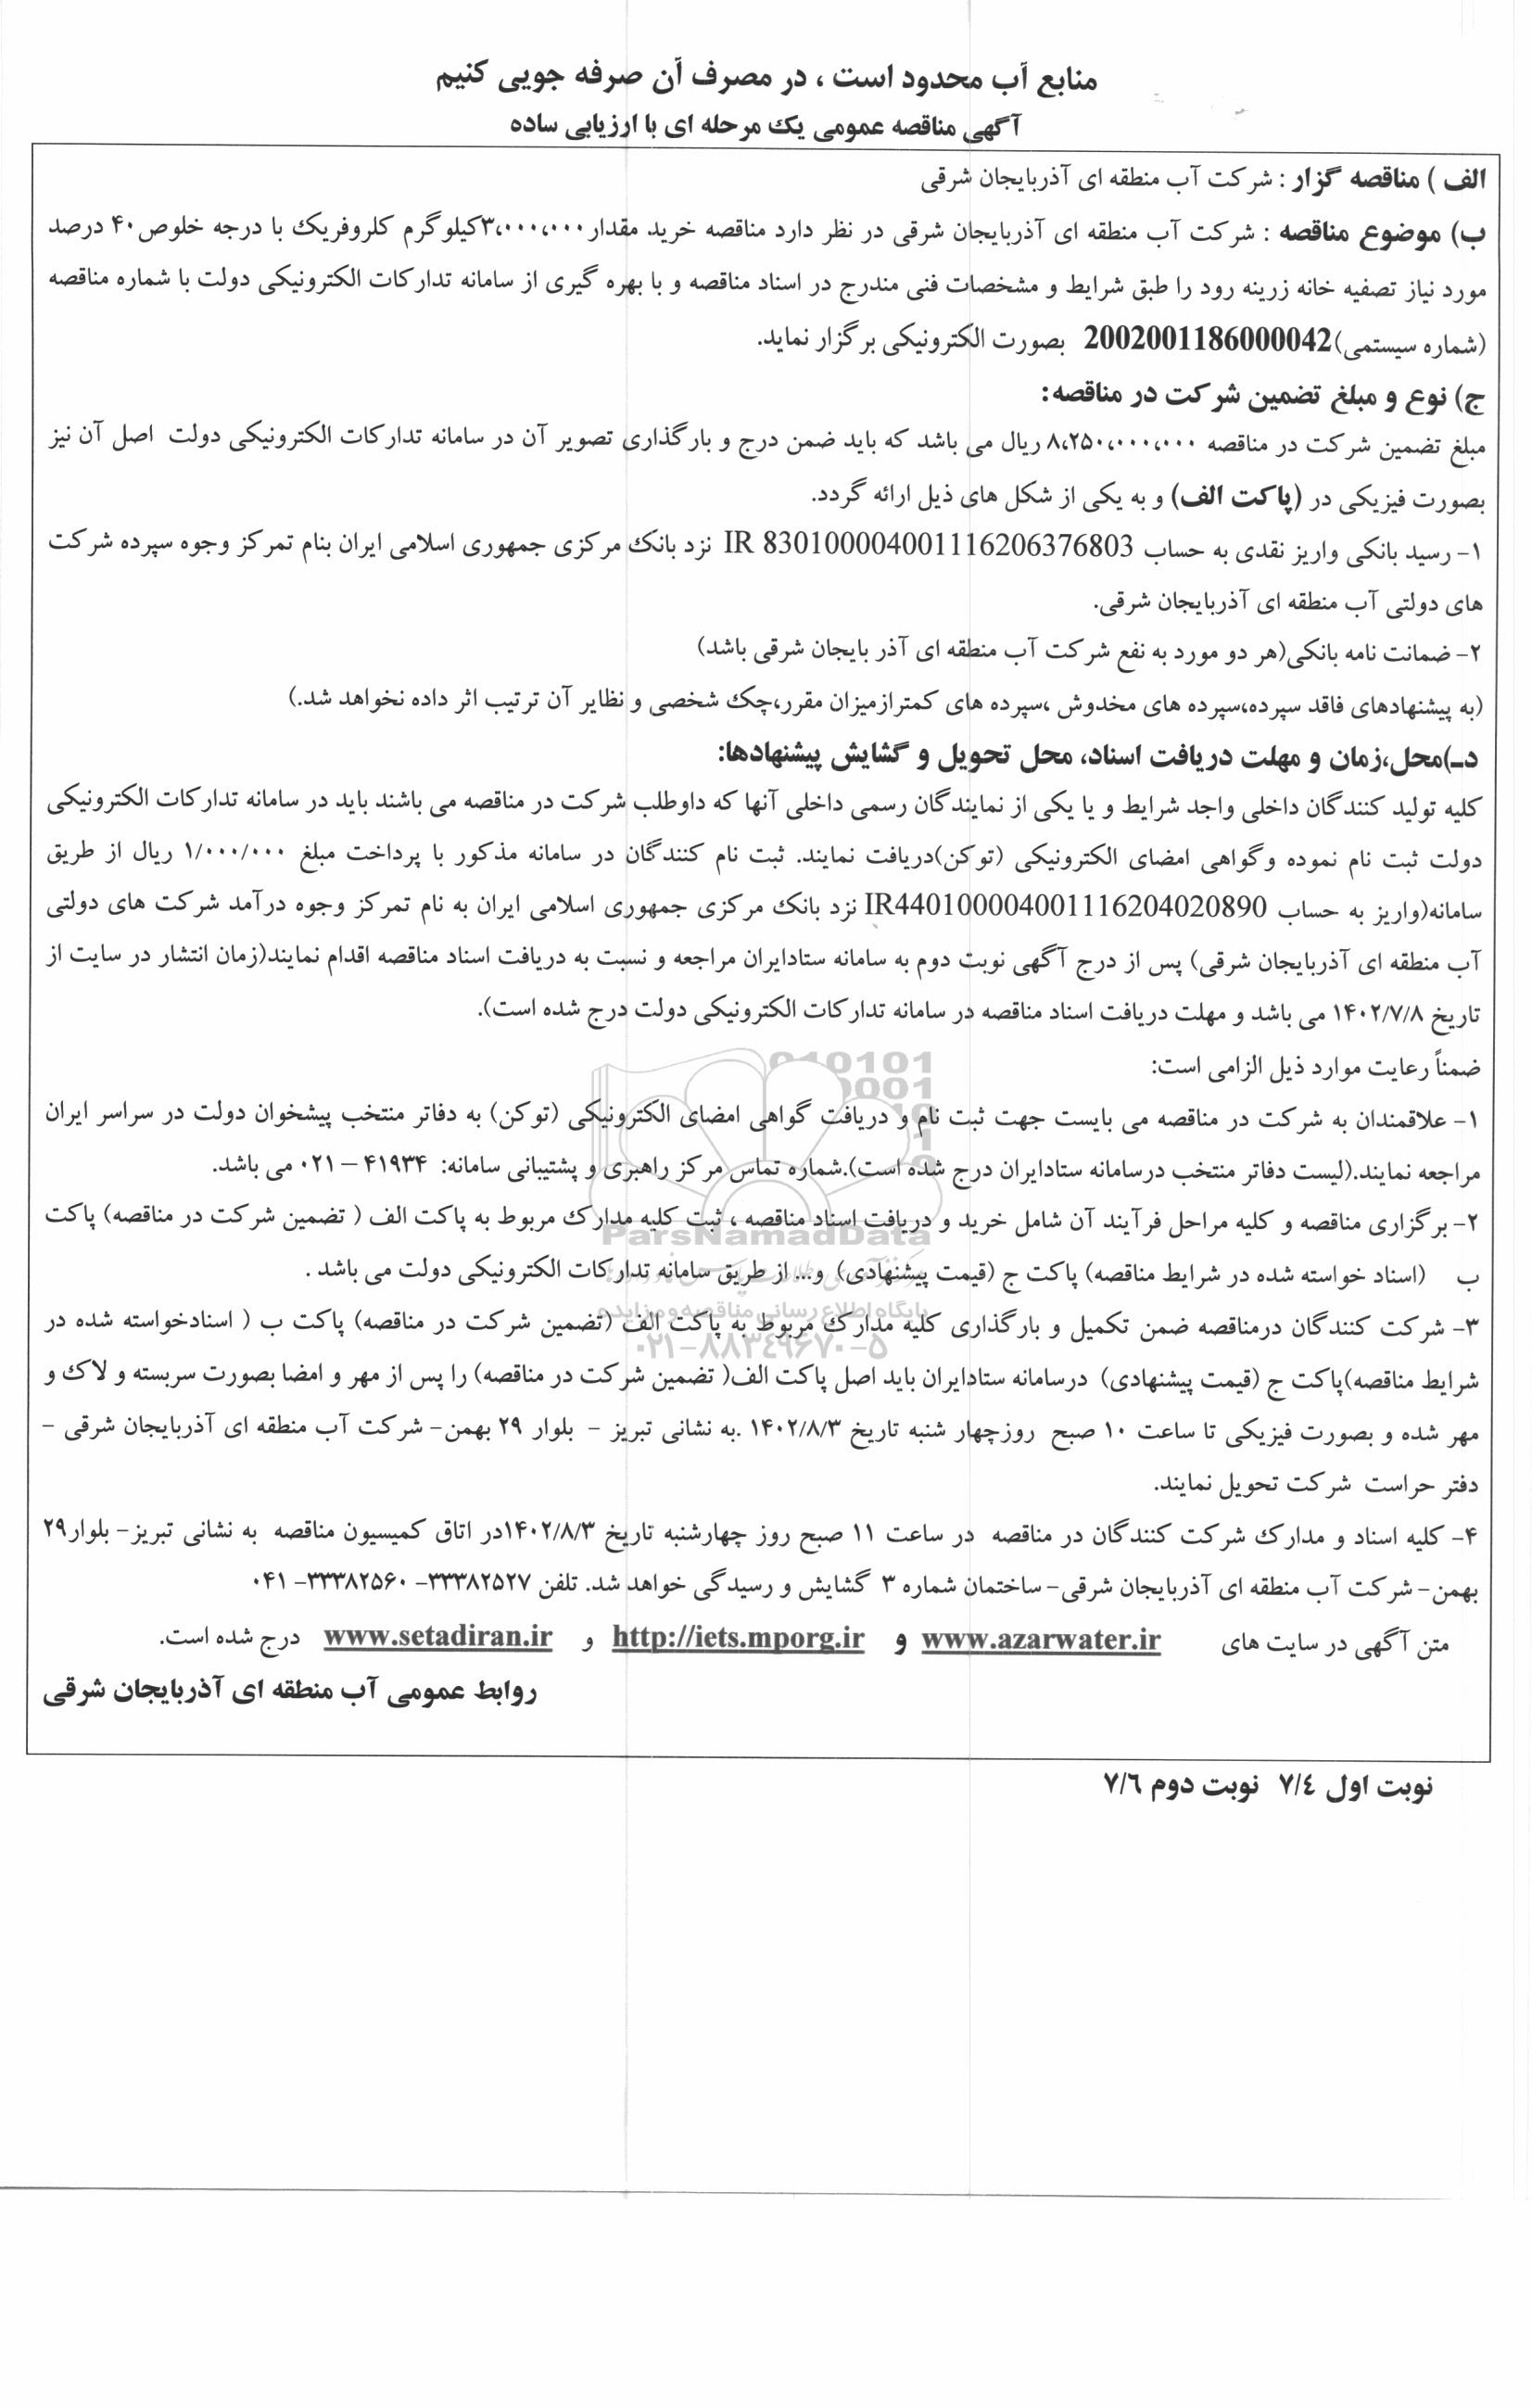 منابع آب محدود است ، در مصرف آن صرفه جویی کنیم
آگهی مناقصه عمومی یک مرحله ای با ارزیابی ساده
الف ) مناقصه گزار : شرکت آب منطقه ای آذربایجان شرقی
ب) موضوع مناقصه : شرکت آب منطقه ای آذربایجان شرقی در نظر دارد مناقصه خرید مقدار۳،۰۰۰،۰۰۰کیلوگرم کلروفریک با درجه خلوص۴۰ درصد
مورد نیاز تصفیه خانه زرینه رود را طبق شرایط و مشخصات فنی مندرج در اسناد مناقصه و با بهره گیری از سامانه تدارکات الکترونیکی دولت با شماره مناقصه
(شماره سیستمی)2002001186000042 بصورت الکترونیکی برگزار نماید.
ج) نوع و مبلغ تضمین شرکت در مناقصه:
مبلغ تضمین شرکت در مناقصه ۸،۲۵۰،۰۰۰،۰۰۰ ریال می باشد که باید ضمن درج و بارگذاری تصویر آن در سامانه تدارکات الکترونیکی دولت اصل آن نیز
بصورت فیزیکی در (پاکت الف) و به یکی از شکل های ذیل ارائه گردد.
۱- رسید بانکی واریز نقدی به حساب IR 830100004001116206376803 نزد بانک مرکزی جمهوری اسلامی ایران بنام تمرکز وجوه سپرده شرکت
های دولتی آب منطقه ای آذربایجان شرقی.
۲- ضمانت نامه بانکی(هر دو مورد به نفع شرکت آب منطقه ای آذر بایجان شرقی باشد)
(به پیشنهادهای فاقد سپرده،سپرده های مخدوش ،سپرده های کمترازمیزان مقرر،چک شخصی و نظایر آن ترتیب اثر داده نخواهد شد.)
د-)محل،زمان و مهلت دریافت اسناد، محل تحویل و گشایش پیشنهادها:
کلیه تولید کنندگان داخلی واجد شرایط و یا یکی از نمایندگان رسمی داخلی آنها که داوطلب شرکت در مناقصه می باشند باید در سامانه تدارکات الکترونیکی
دولت ثبت نام نموده وگواهی امضای الکترونیکی (توکن)دریافت نمایند. ثبت نام کنندگان در سامانه مذکور با پرداخت مبلغ ۱/۰۰۰/۰۰۰ ریال از طریق
سامانه(واریز به حساب IR440100004001116204020890 نزد بانک مرکزی جمهوری اسلامی ایران به نام تمرکز وجوه درآمد شرکت های دولتی
آب منطقه ای آذربایجان شرقی) پس از درج آگهی نوبت دوم به سامانه ستادایران مراجعه و نسبت به دریافت اسناد مناقصه اقدام نمایند(زمان انتشار در سایت از
تاریخ ۱۴۰۲/۷/۸ می باشد و مهلت دریافت اسناد مناقصه در سامانه تدارکات الکترونیکی دولت درج شده است).
ضمناً رعایت موارد ذیل الزامی است:
۱- علاقمندان به شرکت در مناقصه می بایست جهت ثبت نام و دریافت گواهی امضای الکترونیکی (توکن) به دفاتر منتخب پیشخوان دولت در سراسر ایران
مراجعه نمایند.(لیست دفاتر منتخب درسامانه ستادایران درج شده است).شماره تماس مرکز راهبری و پشتیبانی سامانه: ۴۱۹۳۴ – ۰۲۱ می باشد.
۲- برگزاری مناقصه و کلیه مراحل فرآیند آن شامل خرید و دریافت اسناد مناقصه ، ثبت کلیه مدارک مربوط به پاکت الف ( تضمین شرکت در مناقصه) پاکت
ParsNamadData
ب (اسناد خواسته شده در شرایط مناقصه) پاکت ج (قیمت پیشنهادی) و... از طریق سامانه تدارکات الکترونیکی دولت می باشد .
پایگاه اطلاع رسانی مناقصه و مزایده
۳- شرکت کنندگان درمناقصه ضمن تکمیل و بارگذاری کلیه مدارک مربوط به پاکت الف (تضمین شرکت در مناقصه) پاکت ب ( اسنادخواسته شده در
۰۲۱-۸۸۳٤۹۶۷۰-۵
شرایط مناقصه)پاکت ج (قیمت پیشنهادی) درسامانه ستادایران باید اصل پاکت الف( تضمین شرکت در مناقصه) را پس از مهر و امضا بصورت سربسته و لاک و
مهر شده و بصورت فیزیکی تا ساعت ۱۰ صبح روزچهار شنبه تاریخ ۱۴۰۲/۸/۳ .به نشانی تبریز - بلوار ۲۹ بهمن- شرکت آب منطقه ای آذربایجان شرقی -
دفتر حراست شرکت تحویل نمایند.
۴- کلیه اسناد و مدارک شرکت کنندگان در مناقصه در ساعت ۱۱ صبح روز چهارشنبه تاریخ ۱۴۰۲/۸/۳در اتاق کمیسیون مناقصه به نشانی تبریز- بلوار۲۹
بهمن- شرکت آب منطقه ای آذربایجان شرقی- ساختمان شماره ۳ گشایش و رسیدگی خواهد شد. تلفن ۳۳۳۸۲۵۲۷- ۳۳۳۸۲۵۶۰- ۰۴۱
متن آگهی در سایت های www.azarwater.ir و http://iets.mporg.ir و www.setadiran.ir درج شده است.
روابط عمومی آب منطقه ای آذربایجان شرقی
نوبت اول ۷/٤ نوبت دوم ۷/٦